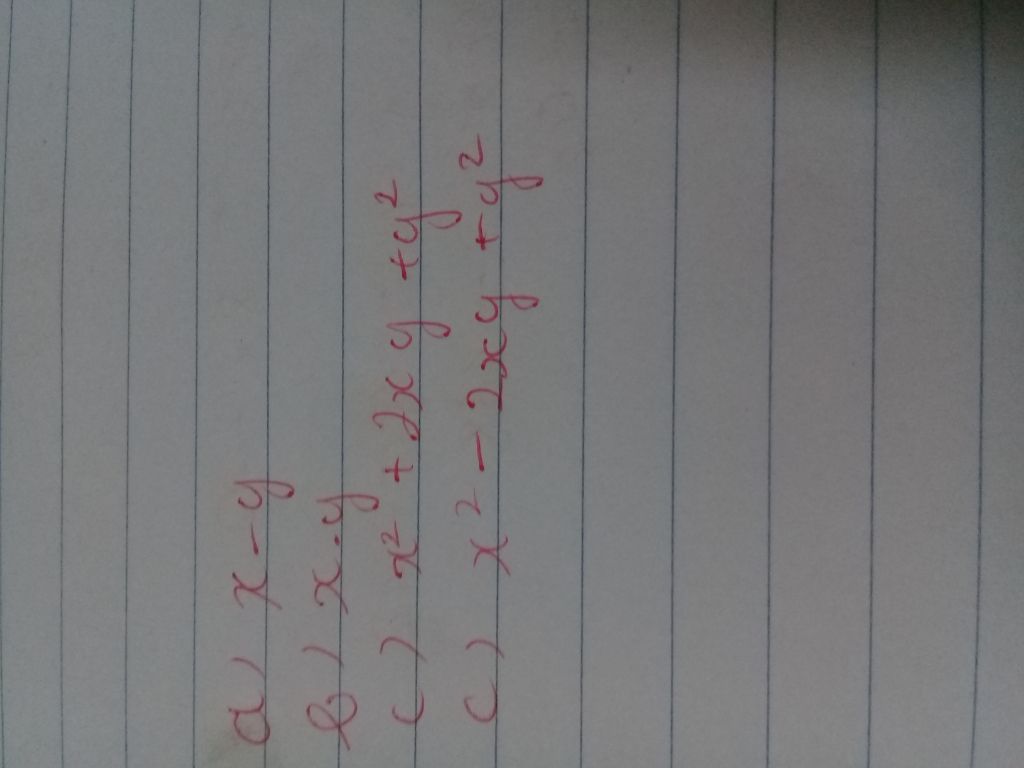 a) x - y
b) x . y
c) x² + 2xy + y²
c) x² - 2xy + y²